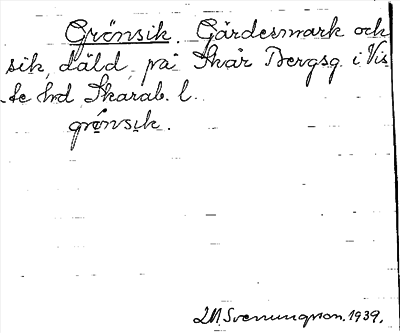 Grönsik. Gärdesmark och
sik, däld, på Skår Bergsg. i Vis
-te hd Skarab. l.
grönsik.
Svenungson. 1939.